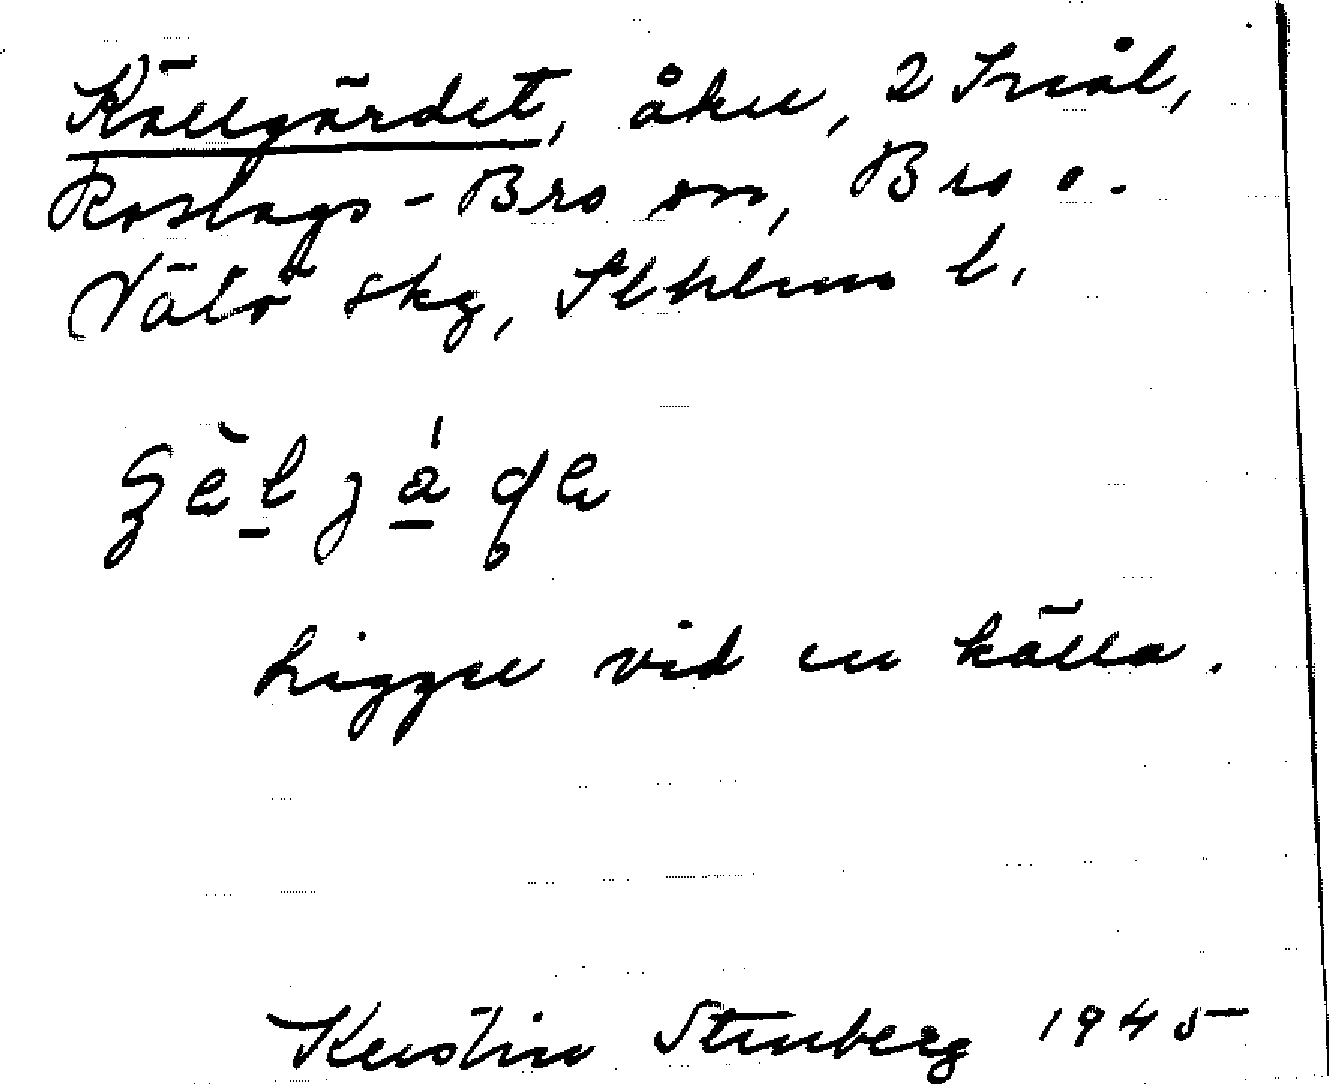 Källgärdet, åker, 2 Smål,
Roslags-Bro sn, Bro o.
Vätö skg, Sthlms l.
Ligger vid en källa.
Kerstin Stenberg 1945